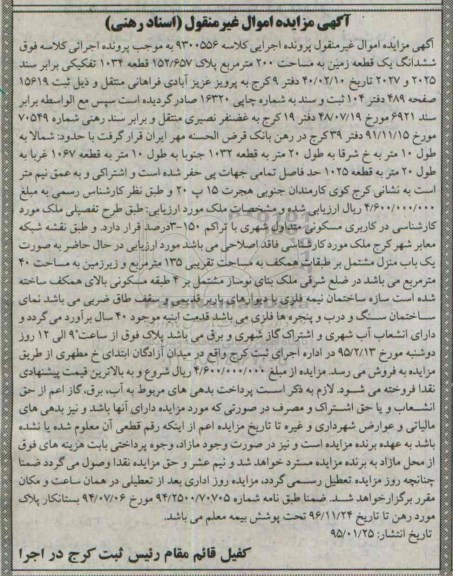 آگهی مزایده اموال غیرمنقول (اسناد رهنی)
آگهی مزایده اموال غیرمنقول پرونده اجرایی کلاسه ۹۳۰۰۵۵۶ به موجب پرونده اجرائی کلاسه فوق
ششدانگ یک قطعه زمین به مساحت ۲۰۰ مترمربع پلاک ۱۵۲/۶۵۷ قطعه ۱۰۳۴ تفکیکی برابر سند
۲۰۲۵ و ۲۰۲۷ تاریخ ۴۰/۰۲/۱۰ دفتر ۹ کرج به پرویز عزیز آبادی فراهانی منتقل و ذیل ثبت ۱۵۶۱۹
صفحه ۴۸۹ دفتر ۱۰۴ ثبت و سند به شماره چاپی ۱۶۳۲۰ صادر گردیده است سپس مع الواسطه برابر
سند ۶۹۲۱ مورخ ۴۸/۰۷/۱۹ دفتر ۱۹ کرج به غضنفر نصیری منتقل و برابر سند رهنی شماره ۷۰۵۴۹
مورخ ۹۱/۱۱/۱۵ دفتر ۳۹ کرج در رهن بانک قرض الحسنه مهر ایران قرار گرفت با حدود: شمالا به
طول ۱۰ متر به خ شرقا به طول ۲۰ متر به قطعه ۱۰۳۲ جنوبا به طول ۱۰ متر به قطعه ۱۰۶۷ غربا به
طول ۲۰ متر به قطعه ۱۰۲۵ حد فاصل تمامی جهات پی حفر شده است و اشتراکی و به عمق نیم متر
است به نشانی کرج کوی کارمندان جنوبی هجرت ۱۵ پ ۲۰ و طبق نظر کارشناس رسمی به مبلغ
۴/۶۰۰/۰۰۰/۰۰۰ ریال ارزیابی شده و مشخصات ملک مورد ارزیابی: طبق طرح تفصیلی ملک مورد
کارشناسی در کاربری مسکونی متداول شهری با تراکم ۱۵۰-۳درصد قرار دارد. و طبق نقشه شبکه
معابر شهر کرج ملک مورد کارشناسی فاقد اصلاحی می باشد مورد ارزیابی در حال حاضر به صورت
یک باب منزل مشتمل بر طبقات همکف به مساحت تقریبی ۱۳۵ مترمربع و زیرزمین به مساحت ۴۰
مترمربع می باشد در ضلع شرقی ملک بنای نوساز مشتمل بر ۴ طبقه مسکونی بالای همکف ساخته
شده است سازه ساختمان نیمه فلزی با دیوارهای باربر قدیمی و سقف طاق ضربی می باشد نمای
ساختمان سنگ و درب و پنجره ها فلزی می باشد قدمت ابنیه موجود ۴۰ سال برآورد می گردد و
دارای انشعاب آب شهری و اشتراک گاز شهری و برق می باشد پلاک فوق از ساعت ۹ الی ۱۲ روز
دوشنبه مورخ ۹۵/۲/۱۳ در اداره اجرای ثبت کرج واقع در میدان آزادگان ابتدای خ مطهری از طریق
مزایده به فروش می رسد. مزایده از مبلغ ۴/۶۰۰/۰۰۰/۰۰۰ ریال شروع و به بالاترین قیمت پیشنهادی
نقدا فروخته می شود. لازم به ذکر است پرداخت بدهی های مربوط به آب، برق، گاز اعم از حق
انشعاب و یا حق اشتراک و مصرف در صورتی که مورد مزایده دارای آنها باشد و نیز بدهی های
مالیاتی و عوارض شهرداری و غیره تا تاریخ مزایده اعم از اینکه رقم قطعی آن معلوم شده یا نشده
باشد به عهده برنده مزایده است و نیز در صورت وجود مازاد، وجوه پرداختی بابت هزینه های فوق
از محل مازاد به برنده مزایده مسترد خواهد شد و نیم عشر و حق مزایده نقدا وصول می گردد ضمنا
چنانچه روز مزایده تعطیل رسمی گردد، مزایده روز اداری بعد از تعطیلی در همان ساعت و مکان
مقرر برگزار خواهد شد. ضمنا طبق نامه شماره ۹۴/۲۵۰۰/۷۰۷۰۵ مورخ ۹۴/۰۷/۰۶ بستانکار پلاک
مورد رهن تا تاریخ ۹۶/۱۱/۲۴ تحت پوشش بیمه معلم می باشد.
تاریخ انتشار: ۹۵/۰۱/۲۵
کفیل قائم مقام رئیس ثبت کرج در اجرا